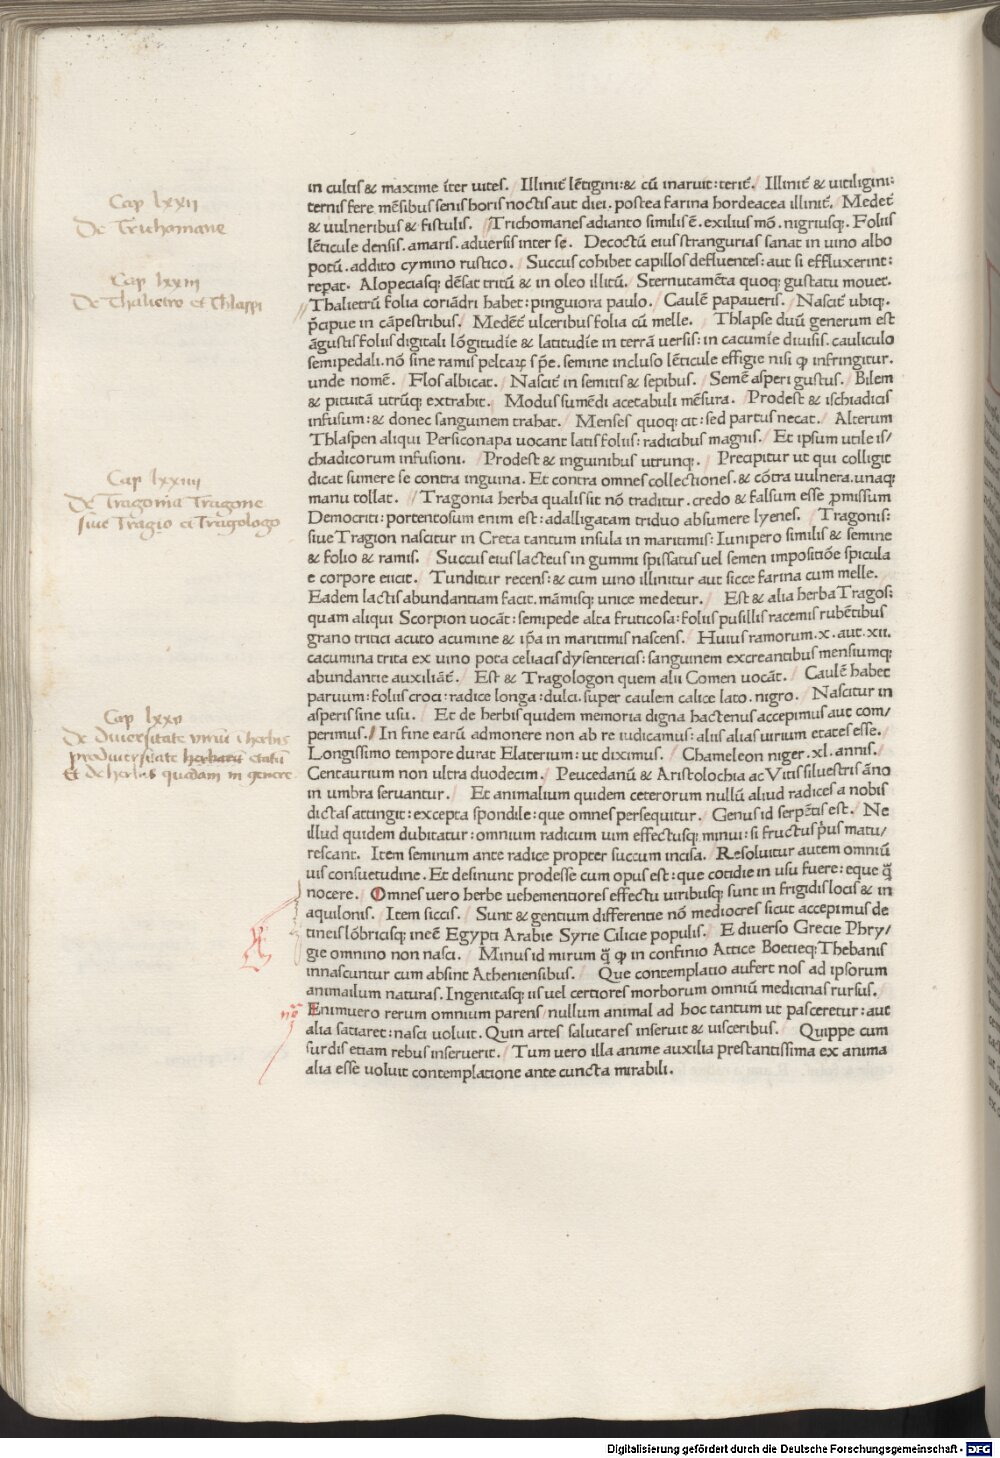 Cap lxxii
De Trichomane
Cap lxxiii
De Thalietro et Thlaspi
Cap lxxiiii
De Tragonia Tragone
siue Tragio et Tragologo
Cap lxxv
De diuersitate viriū i herbis
pro diuersitate herbarū etatū
Et de herbis quādam in genere
in cultis & maxime īter uites. Illinit̄ lētigini: & cū inaruit: terit̄. Illinit̄ & uitiligini:
ternis fere mēsibus senis horis noctis aut diei. postea farina hordeacea illinit̄. Medet̄
& uulneribus & fistulis. Trichomanes adianto similis ē. exilius mō. nigriusq;. Foliis
lēticule densis. amaris. aduersis inter se. Decoctū eius strangurias sanat in uino albo
potū. addito cymino rustico. Succus cohibet capillos defluentes: aut si effluxerint:
reparat. Alopeciasq; dēsat tritū & in oleo illitū. Sternutamēta quoq; gustatu mouet.
Thalietrū folia coriādri habet: pinguiora paulo. Caulē papaueris. Nascit̄ ubiq;.
p̄cipue in cāpestribus. Medēt̄ ulceribus folia cū melle. Thlapse duū generum est
āgustis foliis digitali lōgitudīe & latitudīe in terrā uersis: in cacumīe diuisis. cauliculo
semipedali. nō sine ramis peltarꝝ spē. semine incluso lēticule effigie nisi ꝙ infringitur.
unde nomē. Flos albicat. Nascit̄ in semitis & sepibus. Semē asperi gustus. Bilem
& pituitā utrūq; extrahit. Modus sumēdi acetabuli mēsura. Prodest & ischiadicis
infusum: & donec sanguinem trahat. Menses quoq; cit: sed partus necat. Alterum
Thlaspen aliqui Persiconapa uocant latis foliis: radicibus magnis. Et ipsum utile is/
chiadicorum infusioni. Prodest & inguinibus utrunq;. Precipitur ut qui colligit
dicat sumere se contra inguina. Et contra omnes collectiones. & cōtra uulnera. unaq;
manu tollat. Tragonia herba qualis sit nō traditur. credo & falsum esse ꝓmissum
Democriti: portentosum enim est: adalligatam triduo absumere lyenes. Tragonis:
siue Tragion nascitur in Creta tantum insula in maritimis: Iunipero similis & semine
& folio & ramis. Succus eius lacteus in gummi spissatus uel semen impositiōe spicula
e corpore eiicit. Tunditur recens: & cum uino illinitur aut sicce farina cum melle.
Eadem lactis abundantiam facit. māmisq; unice medetur. Est & alia herba Tragos:
quam aliqui Scorpion uocāt: semipede alta fruticosa: foliis pusillis racemis rubētibus
grano tritici acuto acumine & ip̄a in maritimis nascens. Huius ramorum .x. aut .xii.
cacumina trita ex uino pota celiacis dysentericis: sanguinem excreantibus mensiumq;
abundantie auxiliāt̄. Est & Tragologon quem alii Comen uocāt. Caulē habet
paruum: foliis croci: radice longa: dulci. super caulem calice lato. nigro. Nascitur in
asperis sine usu. Et de herbis quidem memoria digna hactenus accepimus aut com/
perimus. In fine earū admonere non ab re iudicamus: aliis alias uirium etates esse.
Longissimo tempore durat Elaterium: ut diximus. Chameleon niger .xl. annis.
Centaurium non ultra duodecim. Peucedanū & Aristolochia ac Vitis siluestris āno
in umbra seruantur. Et animalium quidem ceterorum nullū aliud radices a nobis
dictas attingit: excepta spondile: que omnes persequitur. Genus id serpētis est. Ne
illud quidem dubitatur: omnium radicum uim effectusq; minui: si fructus p̄us matu/
rescant. Item seminum ante radice propter succum incisa. Resoluitur autem omniū
uis consuetudine. Et desinunt prodesse cum opus est: que cotidie in usu fuere: eque q̄
nocere. Omnes uero herbe uehementiores effectu uiribusq; sunt in frigidis locis & in
aquilonis. Item siccis. Sunt & gentium differentie nō mediocres sicut accepimus de
tineis lōbricisq; ineē Egypti Arabie Syrie Cilicie populis. E diuerso Grecie Phry/
gie omnino non nasci. Minus id mirum q̄ ꝙ in confinio Attice Boetieq; Thebanis
innascuntur cum absint Atheniensibus. Que contemplatio aufert nos ad ipsorum
animalium naturas. Ingenitasq; iis uel certiores morborum omniū medicinas rursus.
Enimuero rerum omnium parens nullum animal ad hoc tantum ut pasceretur: aut
alia satiaret: nasci uoluit. Quin artes salutares inseruit & uisceribus. Quippe cum
surdis etiam rebus inseruerit. Tum uero illa anime auxilia prestantissima ex anima
alia esse uoluit contemplatione ante cuncta mirabili.
Digitalisierung gefördert durch die Deutsche Forschungsgemeinschaft - DFG